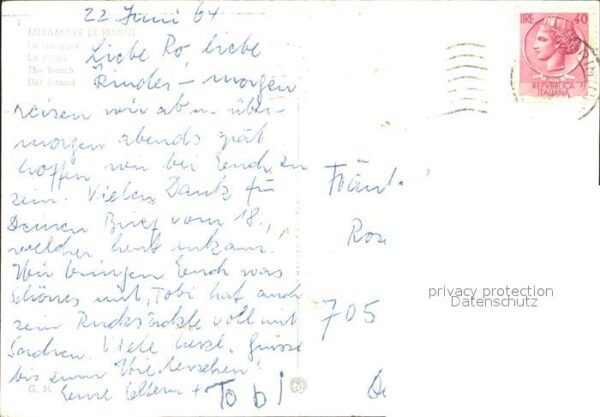 22 Juni 64
MIRAMARE DI RIMINI
La spiaggia
La plage
The beach
Der Strand
Liebe Ro, liebe
Kinder – morgen
reisen wir ab u. über-
morgen abends spät
hoffen wir bei Euch zu
sein. Vielen Dank für
Deinen Brief vom 18.,
welcher heut ankam!
Wir bringen Euch was
schönes mit, Tobi hat auch
sein Rucksäckle voll mit
Sachen. Viele herzl. Grüsse
bis zum Wiedersehen!
Eure Eltern + Tobi
G. 31
LIRE 40
REPVBBLICA
ITALIANA
Fräul.
Ros
705
privacy protection
Datenschutz